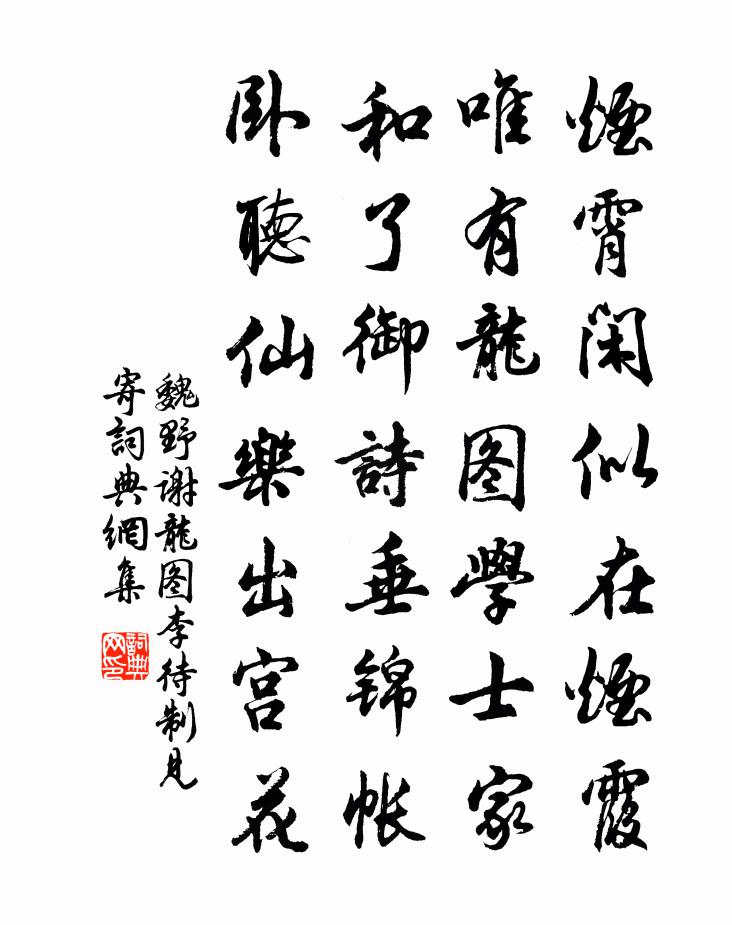 煙霄閑似在煙霞
唯有龍图學士家
和了御詩垂锦帐
卧聽仙樂出宫花
魏野谢龍图李待制見
寄詞典網集
詞典网印